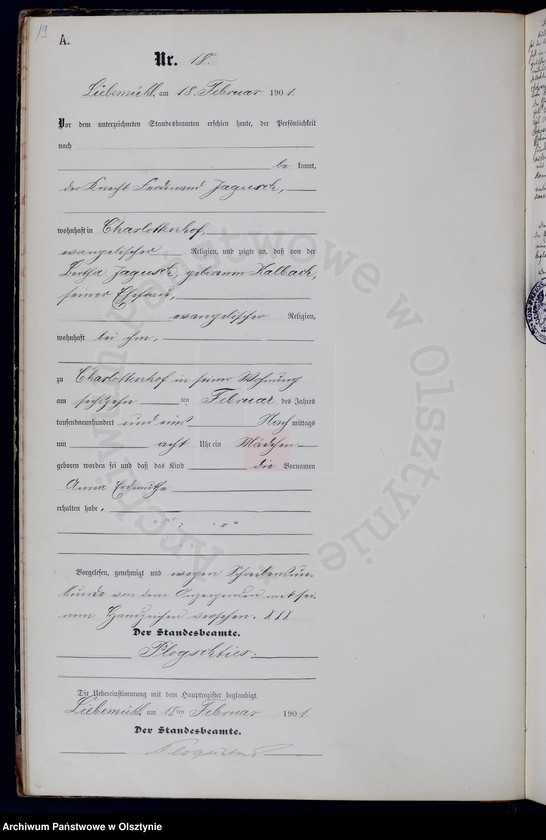 13
A.
Nr. 18.
Liebemühl, am 18. Februar 1901.
Vor dem unterzeichneten Standesbeamten erschien heute, der Persönlichkeit
nach
be kannt,
der Knecht Ferdinand Jagusch,
wohnhaft in Charlottenhof,
evangelischer Religion, und zeigte an, daß von der
Bertha Jagusch, geborenen Kalbach,
seiner Ehefrau,
evangelischer Religion,
wohnhaft bei ihm,
zu Charlottenhof in seiner Wohnung
am sechzehn ten Februar des Jahres
tausendneunhundert und eins Nach mittags
um acht Uhr ein Mädchen
geboren worden sei und daß das Kind die Vornamen
Anna Erdmuthe
erhalten habe.
Vorgelesen, genehmigt und wegen Schreibensun-
kunde von dem Anzeigenden mit sei-
nem Handzeichen versehen. XXX
Der Standesbeamte.
Plogschties.
Die Uebereinstimmung mit dem Hauptregister beglaubigt.
Liebemühl, am 18ten Februar 1901.
Der Standesbeamte.
Archiwum Państwowe w Olsztynie